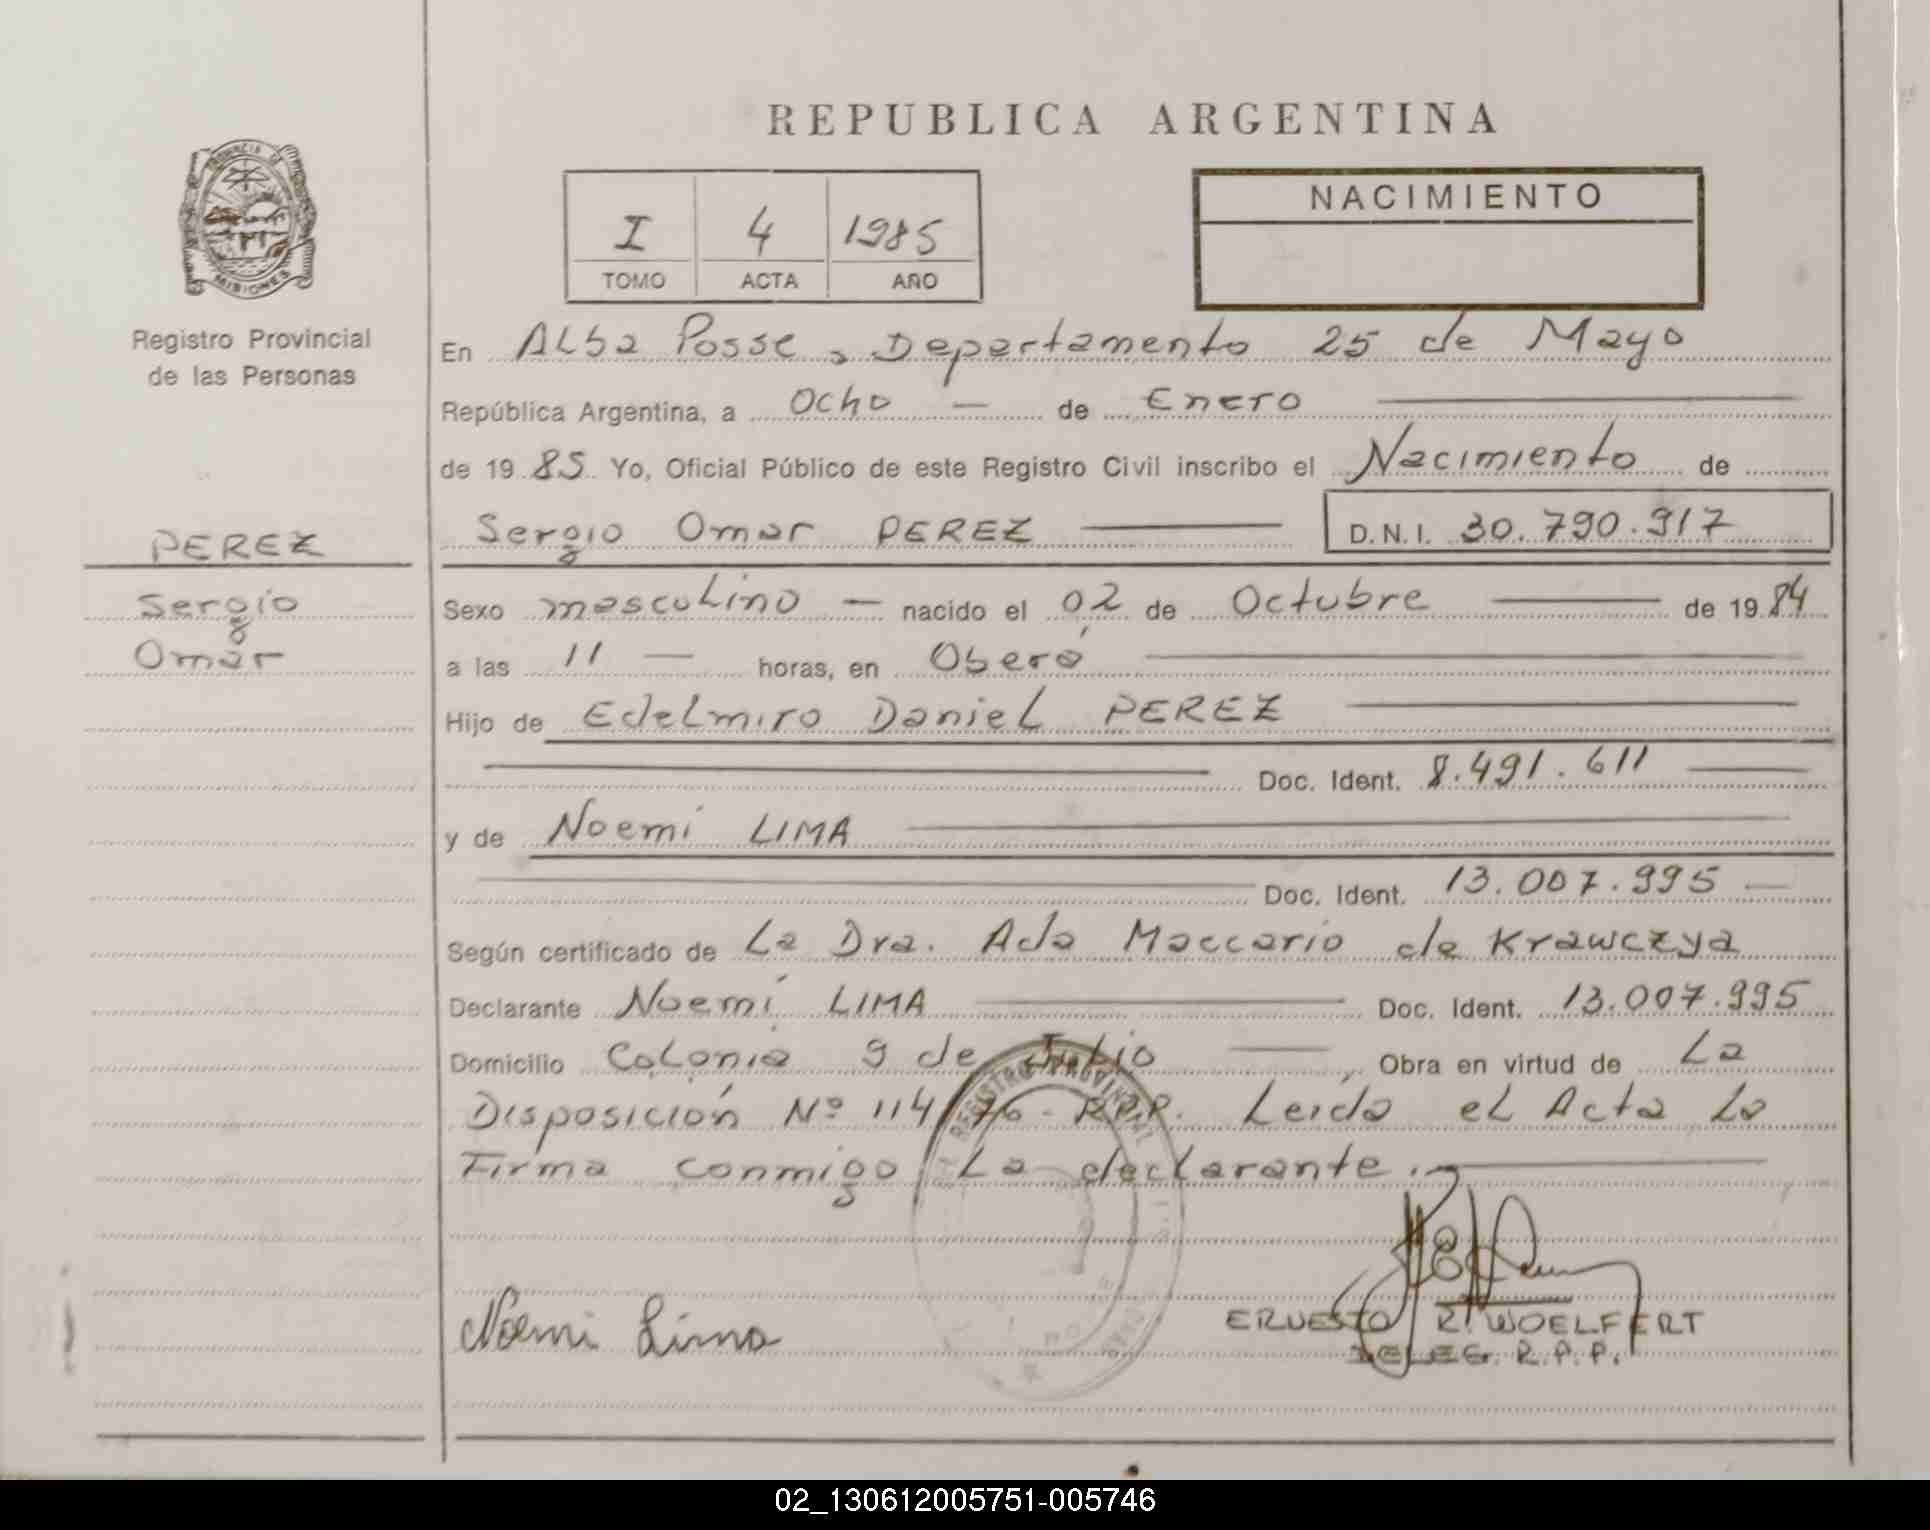 REPUBLICA ARGENTINA
PROVINCIA DE
MISIONES
Registro Provincial
de las Personas
I 4 1985
TOMO ACTA AÑO
NACIMIENTO
En Alba Posse, Departamento 25 de Mayo
República Argentina, a Ocho — de Enero
de 19 85 Yo, Oficial Público de este Registro Civil inscribo el Nacimiento de
PEREZ
Sergio Omar PEREZ D.N.I. 30.790.917
Sergio
Omar
Sexo masculino — nacido el 02 de Octubre de 19 84
a las 11 — horas, en Oberá
Hijo de Edelmiro Daniel PEREZ
Doc. Ident. 8.491.611
y de Noemí LIMA
Doc. Ident. 13.007.995
Según certificado de La Dra. Ada Maccario de Krawczya
Declarante Noemí LIMA Doc. Ident. 13.007.995
Domicilio Colonia 9 de Julio, Obra en virtud de La
Disposición Nº 114/76 - R.P.P. Leida el Acta la
Firma conmigo La declarante.
REGISTRO PROVINCIAL
Noemi Lima
ERNESTO R. WOELFERT
DELEG. R.P.P.
02_130612005751-005746